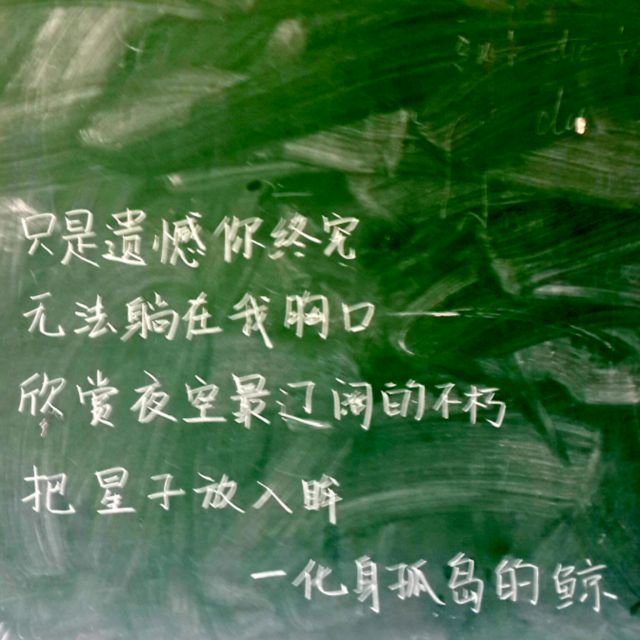 只是遗憾你终究
无法躺在我胸口
欣赏夜空最辽阔的不朽
把星子放入眸
一化身孤岛的鲸